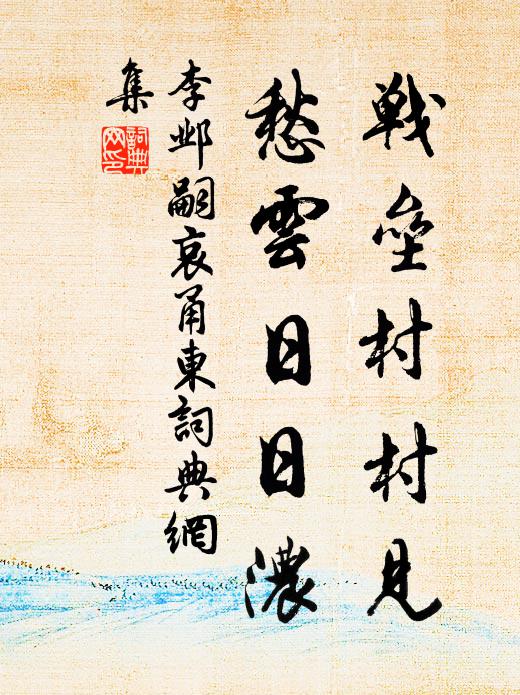 戰壘村村見
愁雲日日濃
李鄴嗣哀甬東詞典網
集
詞典
网印